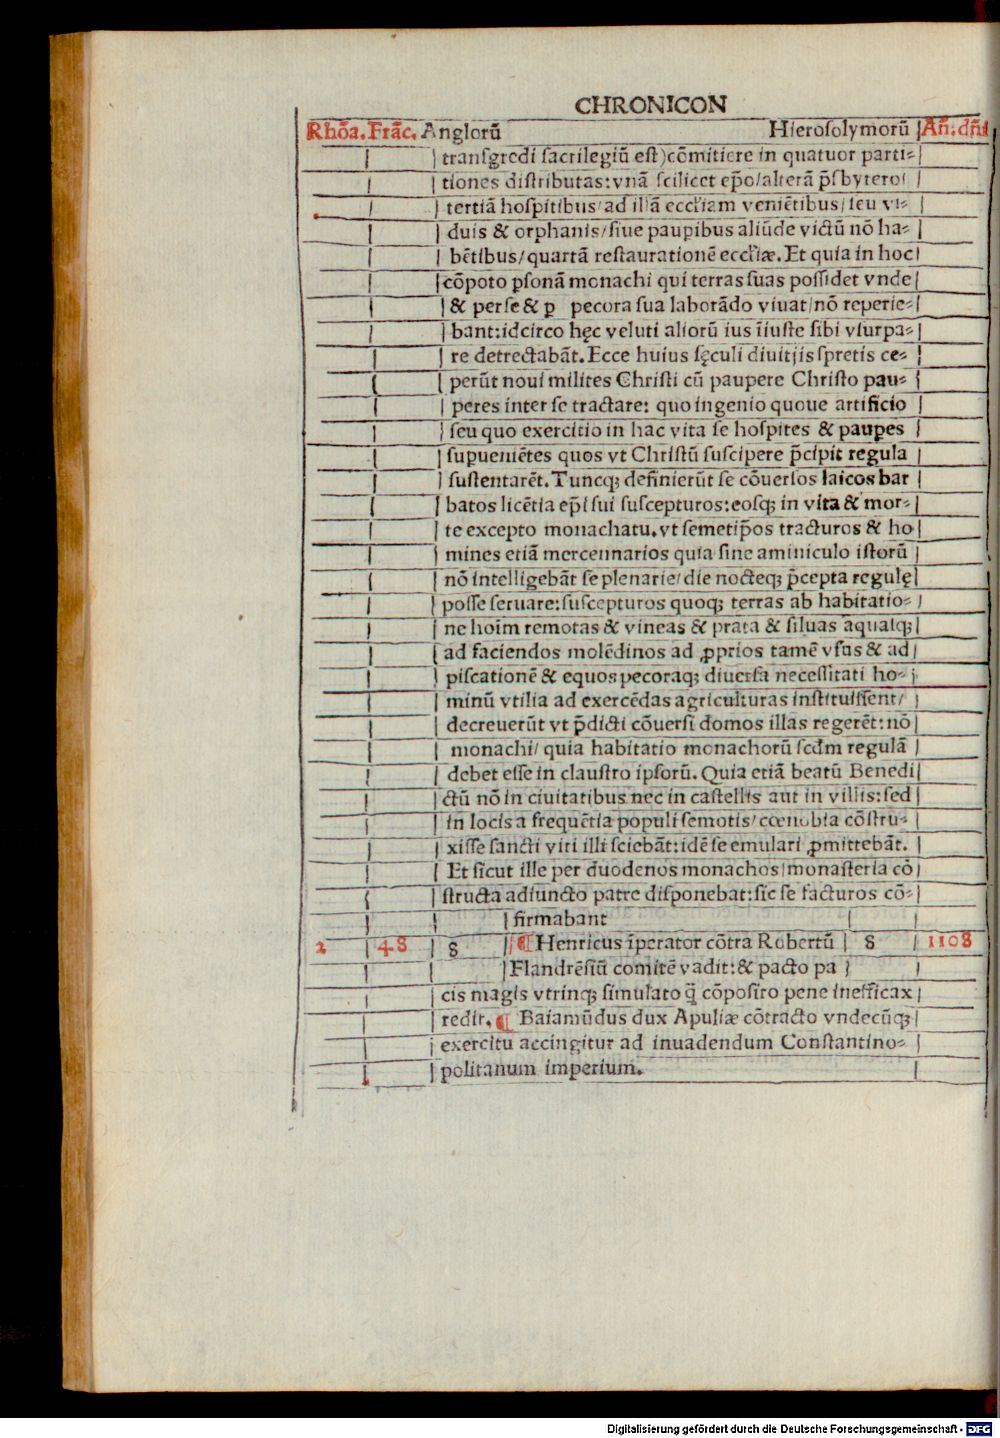 CHRONICON
Rhõa. Frãc. Anglorũ Hierosolymorũ Añ. dñi
transgredi sacrilegiũ est) cõmittere in quatuor parti⸗
tiones distributas: vnã scilicet ep̃o/ alterã p̃sbytero/
tertiã hospitibus/ ad illã eccľiam veniẽtibus/ seu vi⸗
duis & orphanis/ siue paupibus aliũde victũ nõ ha⸗
bẽtibus/ quartã restaurationẽ eccľiæ. Et quia in hoc
cõpoto psonã monachi qui terras suas possidet vnde
& per se & p pecora sua laborãdo viuat/ nõ reperie⸗
bant: idcirco hęc veluti aliorũ ius ĩiuste sibi vsurpa⸗
re detrectabãt. Ecce huius sęculi diuitijs spretis ce⸗
perũt noui milites Christi cũ paupere Christo pau⸗
peres inter se tractare: quo ingenio quoue artificio
seu quo exercitio in hac vita se hospites & paupes
supueniẽtes quos vt Christũ suscipere p̃cipit regula
sustentarẽt. Tuncq; definierũt se cõuersos laicos bar
batos licẽtia ep̃i sui suscepturos: eosq; in vita & mor⸗
te excepto monachatu. vt semetip̃os tracturos & ho
mines etiã mercennarios quia sine aminiculo istorũ
nõ intelligebãt se plenarie/ die nocteq; p̃cepta regulę
posse seruare: suscepturos quoq; terras ab habitatio⸗
ne hoĩm remotas & vineas & prata & siluas aquasq;
ad faciendos molẽdinos ad ꝓprios tamẽ vsus & ad
piscationẽ & equos pecoraq; diuersa necessitati ho⸗
minũ vtilia ad exercẽdas agriculturas instituissent/
decreuerũt vt p̃dicti cõuersi domos illas regerẽt: nõ
monachi/ quia habitatio monachorũ scđm regulã
debet esse in claustro ipsorũ. Quia etiã beatũ Benedi
ctũ nõ in ciuitatibus nec in castellis aut in villis: sed
in locis a frequẽtia populi semotis/ cœnobia cõstru⸗
xisse sancti viri illi sciebãt: idẽ se emulari ꝓmittebãt.
Et sicut ille per duodenos monachos/ monasteria cõ
structa adiuncto patre disponebat: sic se facturos cõ⸗
firmabant
2 48 8 ¶ Henricus ĩperator cõtra Robertũ 8 1108
Flandrẽsiũ comitẽ vadit: & pacto pa
cis magis vtrinq; simulato q̃ cõposito pene inefficax
redit. ¶ Baiamũdus dux Apuliæ cõtracto vndecũq;
exercitu accingitur ad inuadendum Constantino⸗
politanum imperium.
Digitalisierung gefördert durch die Deutsche Forschungsgemeinschaft - DFG